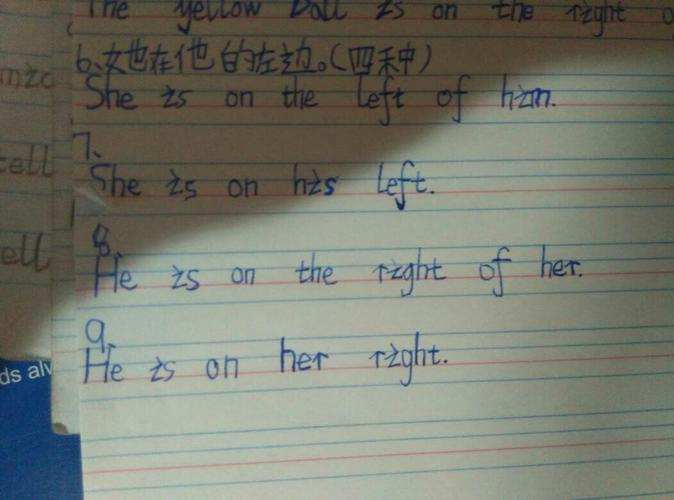 The yellow ball is on the right o
6、她在他的左边。(四种)
She is on the left of him.
7、
She is on his left.
8
He is on the right of her.
9,
He is on her right.
cell
ell
ds alv